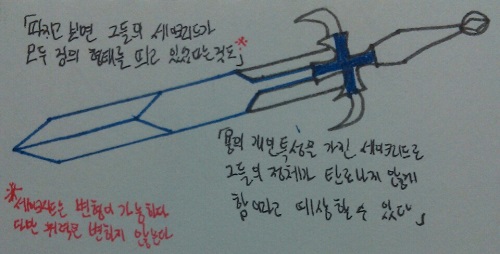 「따지고 보면 그들의 세크리드가
모두 검의 형태를 띄고 있었다는것도」※
「용의 개인특성을 가진 세이크리드로
그들의 정체가 탄로나지 않게
함이라고 예상할 수 있다」
※세이크리드은 변형이 가능하다
다만 위력은 변하지 않는다